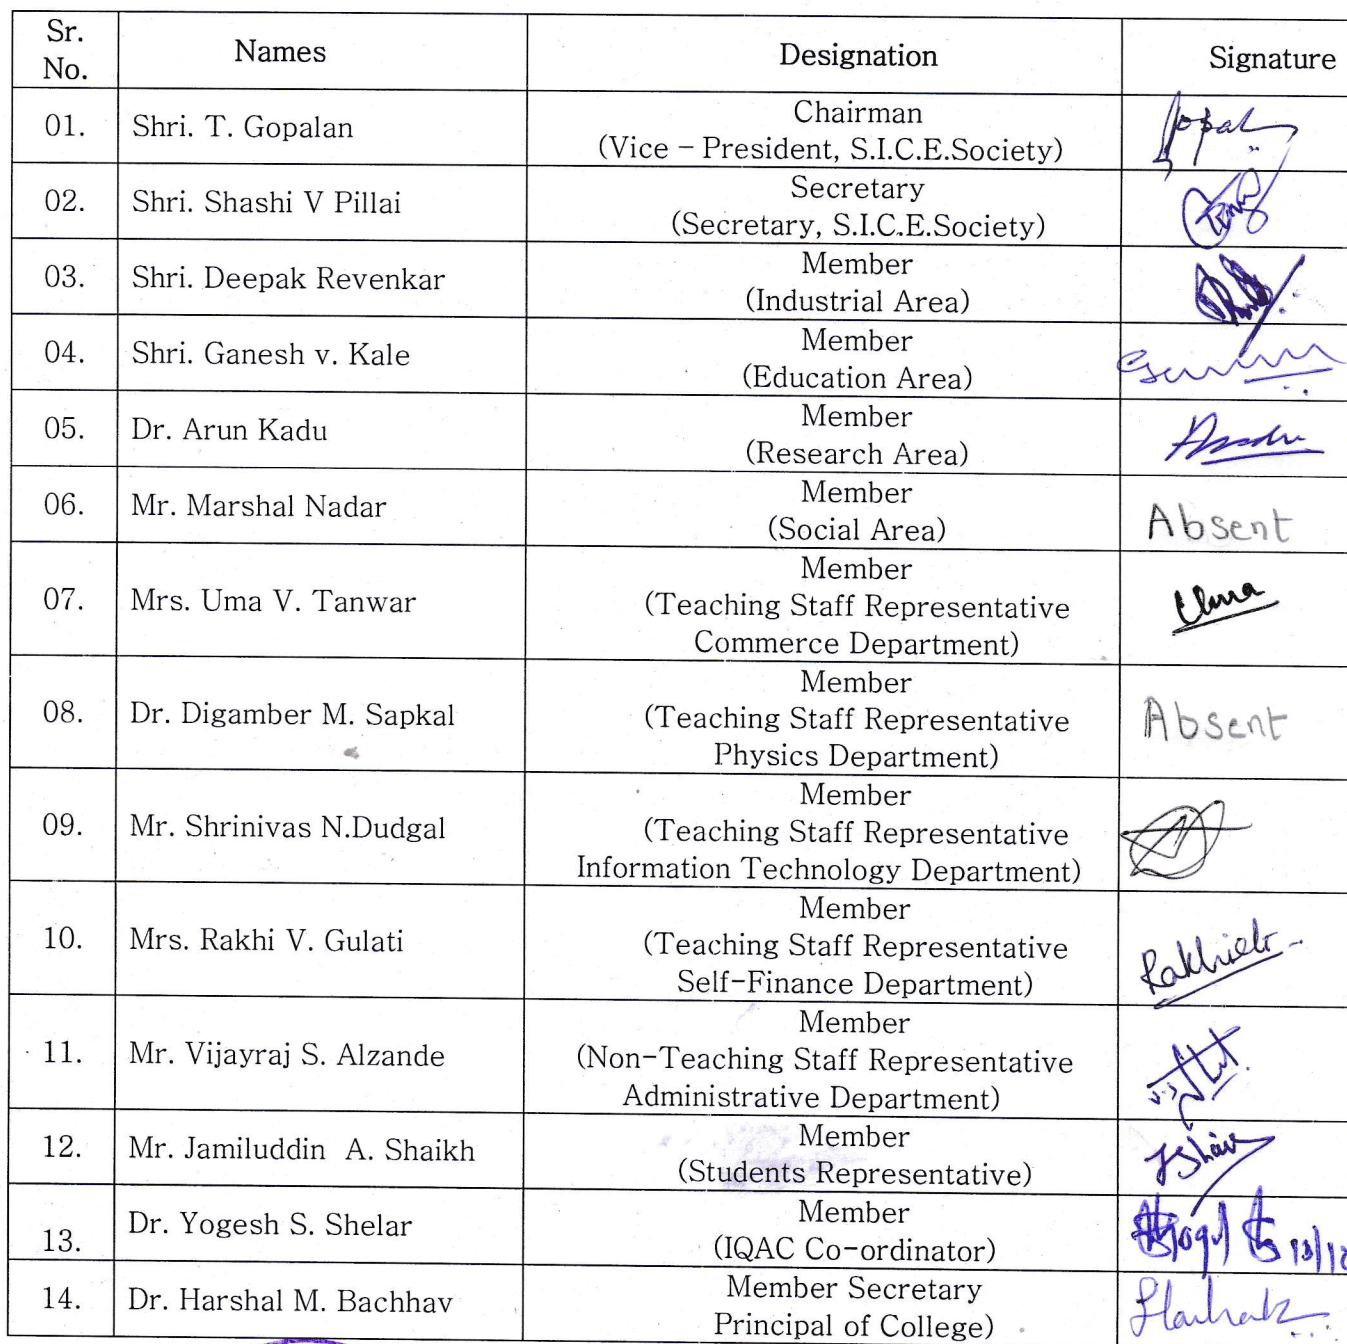 Sr. No. Names Designation Signature
01. Shri. T. Gopalan Chairman
(Vice – President, S.I.C.E.Society)
02. Shri. Shashi V Pillai Secretary
(Secretary, S.I.C.E.Society)
03. Shri. Deepak Revenkar Member
(Industrial Area)
04. Shri. Ganesh v. Kale Member
(Education Area)
05. Dr. Arun Kadu Member
(Research Area)
06. Mr. Marshal Nadar Member
(Social Area) Absent
07. Mrs. Uma V. Tanwar Member
(Teaching Staff Representative
Commerce Department) Uma
08. Dr. Digamber M. Sapkal Member
(Teaching Staff Representative
Physics Department) Absent
09. Mr. Shrinivas N.Dudgal Member
(Teaching Staff Representative
Information Technology Department)
10. Mrs. Rakhi V. Gulati Member
(Teaching Staff Representative
Self-Finance Department)
11. Mr. Vijayraj S. Alzande Member
(Non-Teaching Staff Representative
Administrative Department)
12. Mr. Jamiluddin A. Shaikh Member
(Students Representative)
13. Dr. Yogesh S. Shelar Member
(IQAC Co-ordinator)
14. Dr. Harshal M. Bachhav Member Secretary
Principal of College)